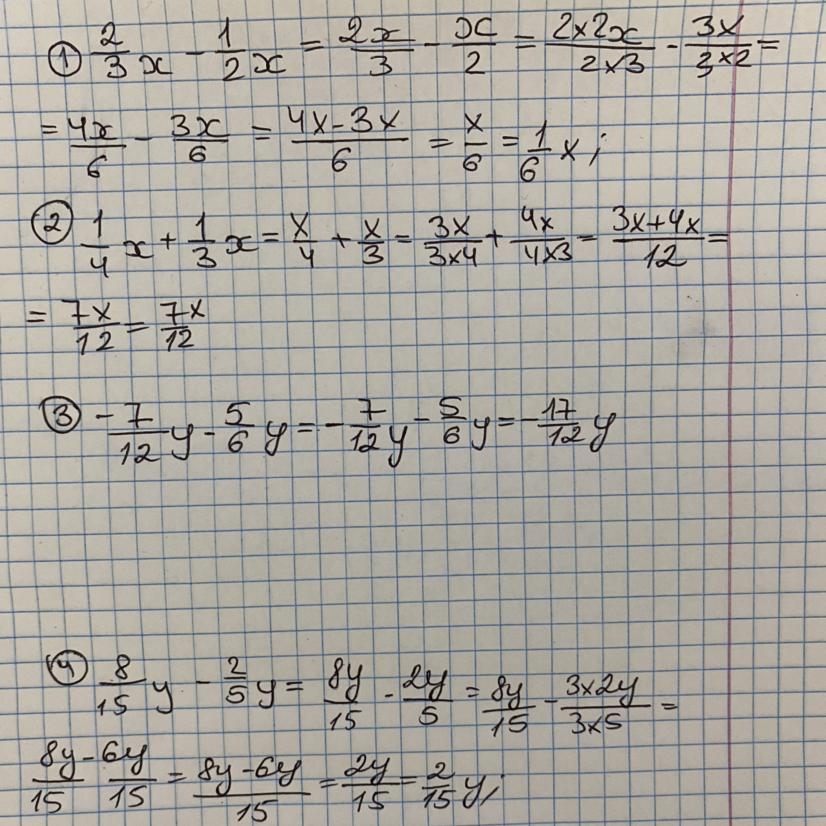 ① 2/3 x - 1/2 x = 2x/3 - x/2 = 2×2x/2×3 - 3x/3×2 =
= 4x/6 - 3x/6 = 4x-3x/6 = x/6 = 1/6 x;
② 1/4 x + 1/3 x = x/4 + x/3 = 3x/3×4 + 4x/4×3 = 3x+4x/12 =
= 7x/12 = 7x/12
③ -7/12 y - 5/6 y = -7/12 y - 5/6 y = -17/12 y
④ 8/15 y - 2/5 y = 8y/15 - 2y/5 = 8y/15 - 3×2y/3×5 =
8y/15 - 6y/15 = 8y-6y/15 = 2y/15 = 2/15 y;